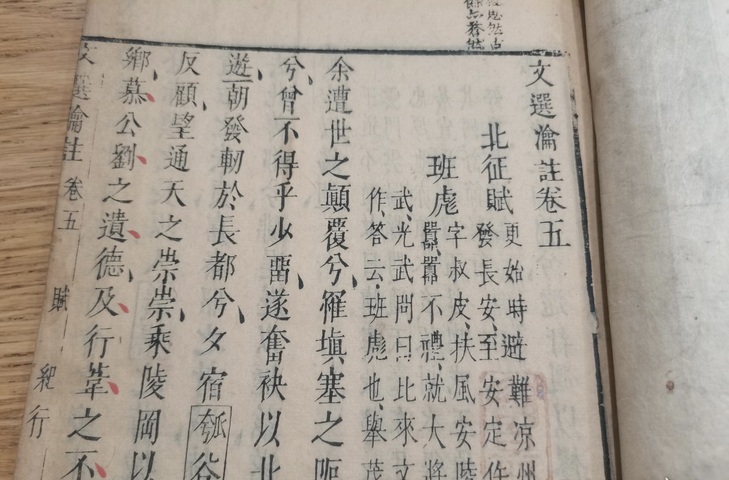 文選瀹註卷五
北征賦
更始時避難凉州
發長安、至安定作
班彪
字叔皮、扶風安陵
囂、囂不禮、就大將
武、光武問曰比來文
作、答云、班彪也、舉茂
余遭世之顛覆兮、罹塡塞之阨
兮、曾不得乎少畱、遂奮袂以北
遊、朝發軔於長都兮、夕宿瓠谷
反顧、望通天之崇崇、乘陵岡以
鄉、慕公劉之遺德、及行葦之不
文選瀹註 卷五 賦 紀行